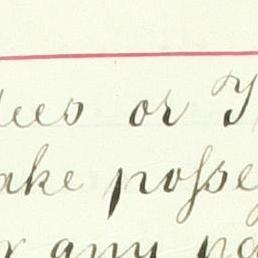 tees or T
ake posse
or any pa